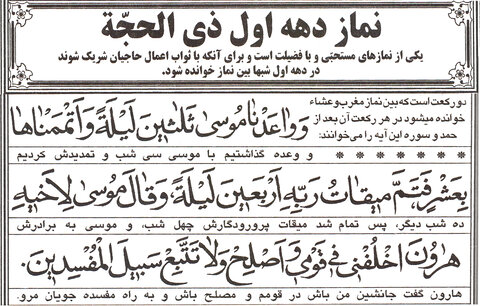 نماز دهه اول ذی الحجّة
یکی از نمازهای مستحبّی و با فضیلت است و برای آنکه با ثواب اعمال حاجیان شریک شوند
در دهه اول شبها بین نماز خوانده شود.
دو رکعت است که بین نماز مغرب و عشاء
خوانده میشود در هر رکعت آن بعد از
حمد و سوره این آیه را می‌خوانند:
وَوَاعَدْنَا مُوسٰی ثَلٰثِینَ لَیْلَةً وَاَتْمَمْنَاهَا
* * * * * * * و وعده گذاشتیم با موسی سی شب و تمدیدش کردیم
بِعَشْرٍ فَتَمَّ مِیقَاتُ رَبِّهِ اَرْبَعِینَ لَیْلَةً وَقَالَ مُوسٰی لِاَخِیهِ
ده شب دیگر، پس تمام شد میقات پرورودگارش چهل شب، و موسی به برادرش
هٰرُونَ اخْلُفْنِی فِی قَوْمِی وَاَصْلِحْ وَلَا تَتَّبِعْ سَبِیلَ الْمُفْسِدِینَ.
هارون گفت جانشین من باش در قومم و مصلح باش و به راه مفسده جویان مرو.